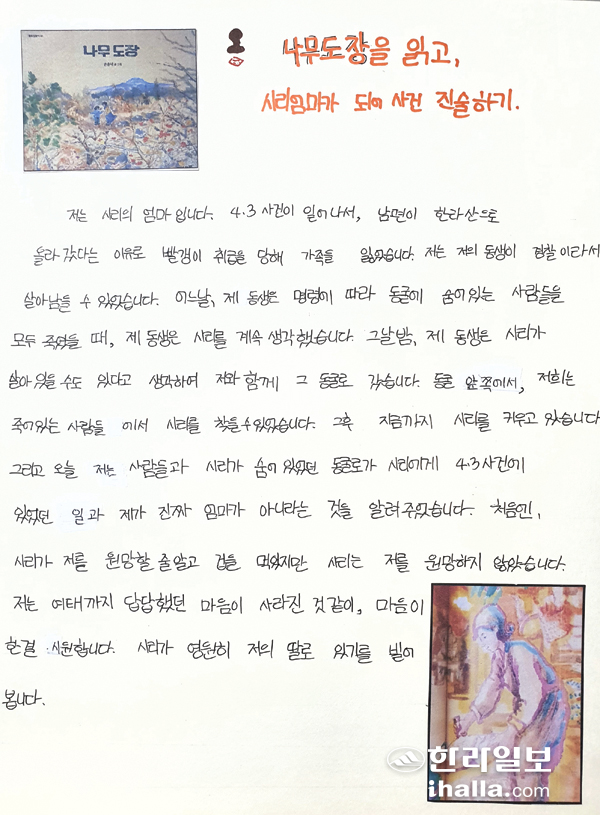 나무 도장
나무도장을 읽고,
시리엄마가 되어 사건 진술하기.
저는 시리의 엄마 입니다. 4.3 사건이 일어나서, 남편이 한라산으로
올라갔다는 이유로 빨갱이 취급을 당해 가족들 잃었습니다. 저는 저의 동생이 경찰이라서
살아남을 수 있었습니다. 어느날, 제 동생은 명령에 따라 동굴에 숨어 있는 사람들을
모두 죽였을 때, 제 동생은 시리를 계속 생각했습니다. 그날밤, 제 동생은 시리가
살아있을 수도 있다고 생각하여 저와 함께 그 동굴로 갔습니다. 동굴 앞쪽에서, 저희는
죽어있는 사람들 에서 시리를 찾을 수 있었습니다. 그후 지금까지 시리를 키우고 있습니다
그리고 오늘 저는 사람들과 시리가 숨어 있었던 동굴로가 시리에게 4.3 사건에
있었던 일과 제가 진짜 엄마가 아니라는 것을 알려주었습니다. 처음엔,
시리가 저를 원망할 줄알고 겁을 먹었지만 시리는 저를 원망하지 않았습니다.
저는 여태까지 답답했던 마음이 사라진 것같이, 마음이
한결 시원합니다. 시리가 영원히 저의 딸로 있기를 빌어
봅니다.
한라일보
ihalla.com